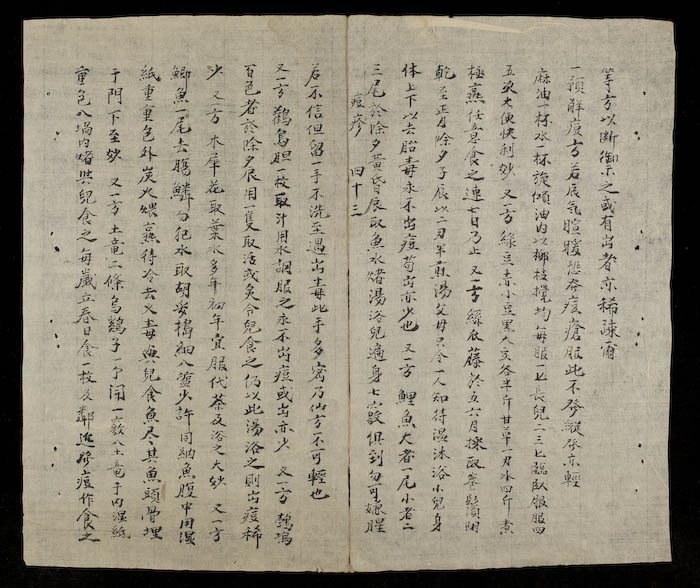 等方以斷御之或有出者亦稀疎甭
一預觧痘方若辰氣暄暖恐發痘瘡服此不發縱發亦輕
麻油一杯水一杯旋傾油内以柳枝攪均每服一匕長兒二三匕臨卧服服四
五次大便快利妙 又一方 綠豆赤小豆黑大豆各半斤甘草一刄水四斤煮
極熹任意食之連七日乃止 又一方 絲瓜藤於五六月採取卷鬚陰
乾至正月除夕子辰以二刄半煎湯父母只令一人知待温沐浴小兒身
体上下以去胎毒永不出痘苟出亦少也 又一方 鯉魚大者一尾小者二
三尾於除夕黄昏辰取魚水煮湯浴兒遍身七竅俱到勿可嫌腥
痘疹 四十三
若不信但留一手不洗至遇出毒此手多密乃仙方不可輕也
又一方 鶴鳥胆一枚取汁用水調服之永不出痘或出亦少 又一方 鵓鴣
百色者於除夕辰用一隻取活或炙令兒食之仍以此湯浴之則出痘稀
少 又一方 木犀花取葉水多年初年宜服代茶及浴之大妙 又一方
鯽魚一尾去膓鱗勿犯水取胡麥擣細八塩少許同納魚腹中用湿
紙重重包外炭火煨熹待冷去火毒與兒食魚尽其魚頭骨埋
于門下至妙 又一方 土竜二條烏鷄子一个開一竅八土竜于内湿紙
重包八堝内煮與兒食之每歲立春日食一枚及鄰近發痘作食之